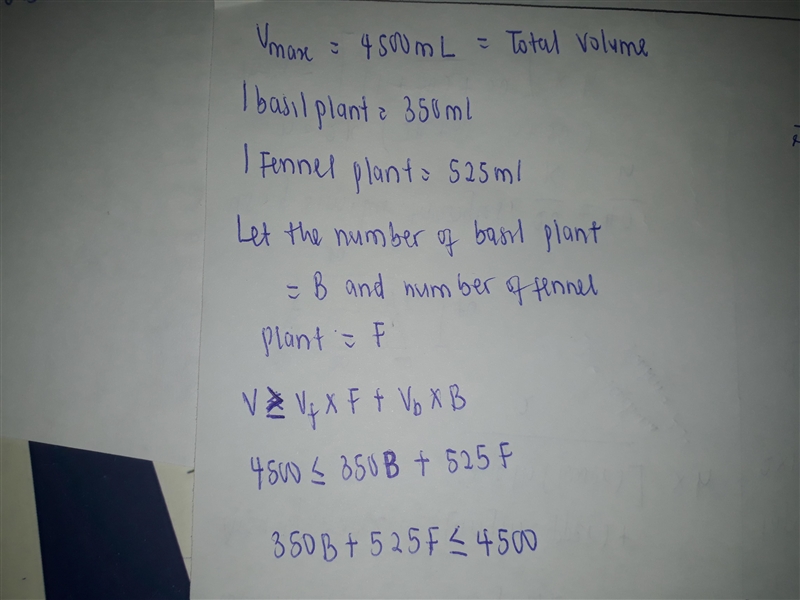 Vmax = 4500mL = Total volume
1 basil plant = 350ml
1 Fennel plant = 525ml
Let the number of basil plant
= B and number of fennel
plant = F
V ≥ Vf × F + Vb × B
4500 ≤ 350B + 525F
350B + 525F ≤ 4500